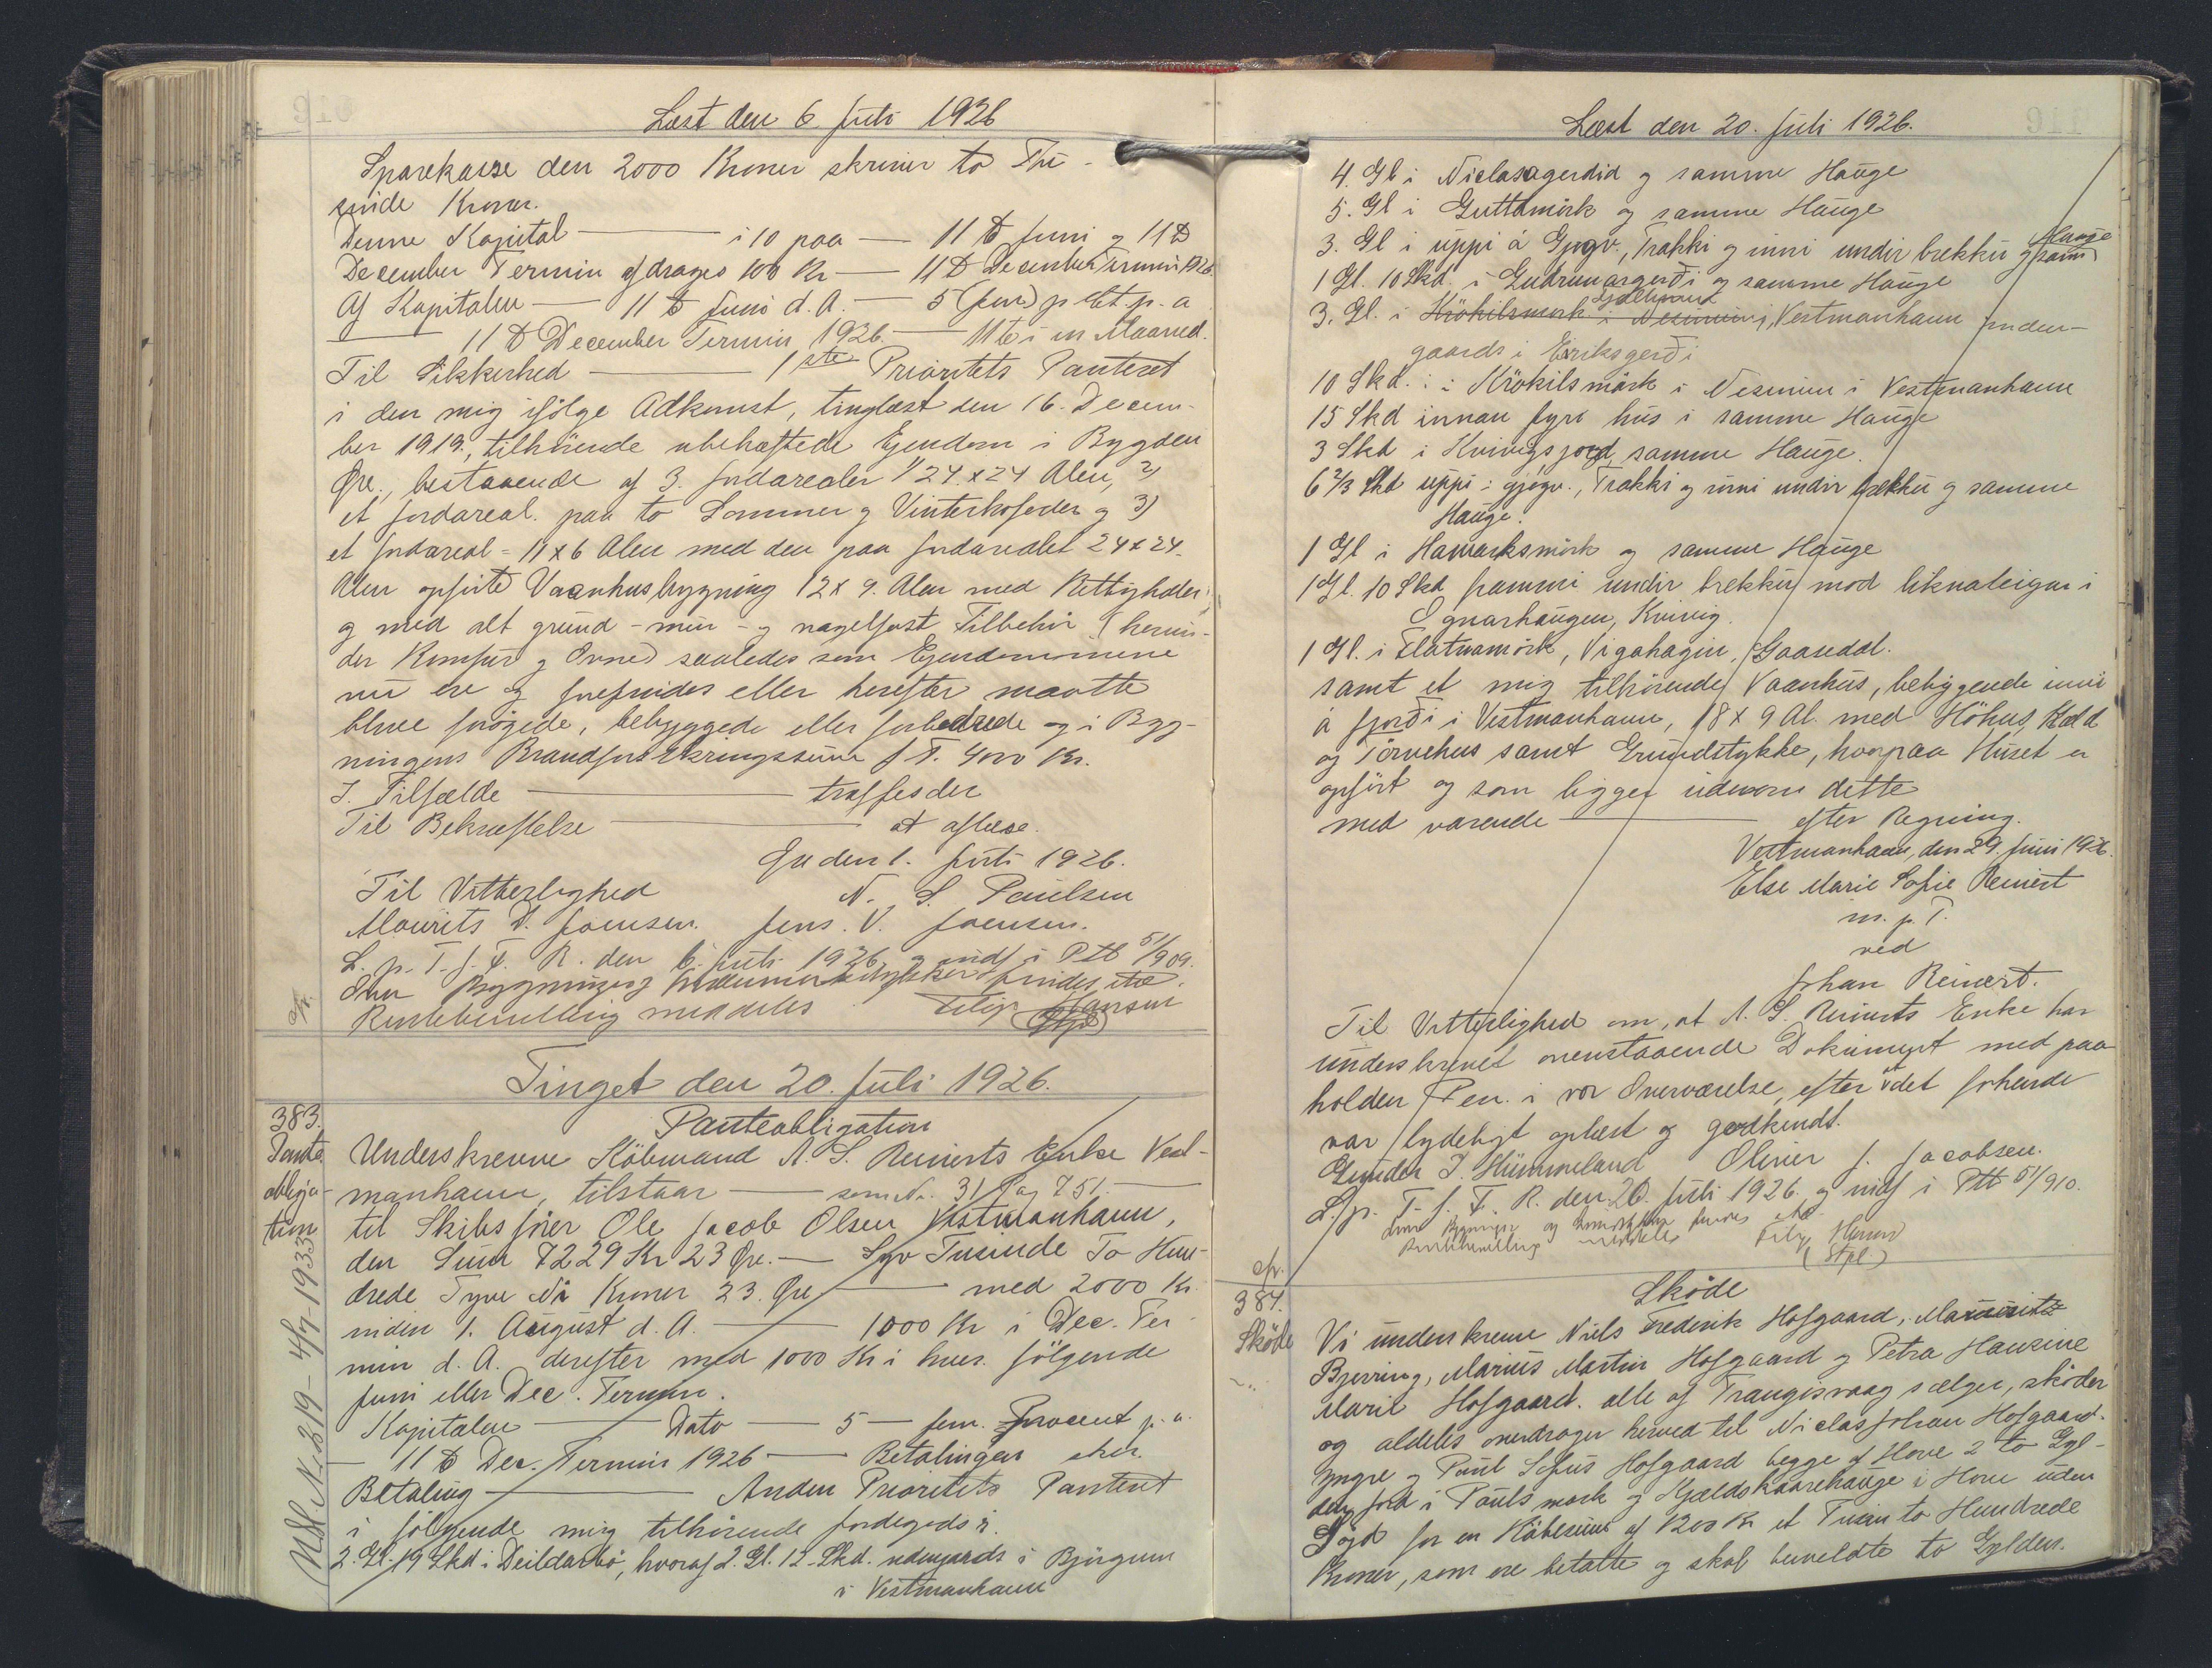 Læst den 6 Juli 1926
Sparekasse den 2000 Kroner skriver to Tu-
sinde Kroner.
Denne Kapital — i 10 paa — 11 D Juni og 11 D
December Termin afdrages 100 Kr — 11 D December Termin 1926
Af Kapitalen — 11 D Juni d. A. — 5 (fem) p Ct. p. a
— 11 D December Termin 1926. — 11te i en Maaned.
Til Sikkerhed — 1ste Prioritets Panteret
i den mig ifölge Adkomst, tinglæst den 16. Decem-
ber 1919, tilhörende ubehæftede Ejendom i Bygden
Öre, bestaaende af 3. Jordarealer 1/ 24 x 24 Alen, 2)
et Jordareal. paa to Sommer og Vinterkofoder og 3)
et Jordareal = 11 x 6 Alen med den paa Jordarealet 24 x 24.
Alen opförte Vaanhusbygning 12 x 9. Alen med Rettigheder
og med alt grund - mur - og nagelfast Tilbehör (herun-
der Komfur og Ovne) saaledes som Ejendommene
nu ere og forefindes eller herefter maatte
blive forøgede, bebyggede eller forbedrede og i Byg-
ningens Brandforsikringssum f T. 4000 Kr.
I. Tilfælde — træffes der
Til Bekræftelse — at aflæse.
Öre den 1. Juli 1926.
Til Vitterlighed N. S. Poulsen
Mourits D. Joensen. Jens. V. Joensen.
L. p. T. f. F. R. den 6. Juli 1926 og indf i Ptb 51/909.
Om Bygning og findes Att.
Rentebevilling meddeles Filip Hansen
cfr. (Stpl)
Tinget den 20. Juli 1926.
383. Panteobligation
Pante- Underskrevne Köbmand A. S. Reinerts Enke Vest-
obliga- manhavn, tilstaar — som Nr. 31 Pag 751. —
tion til Skibsförer Ole Jacob Olsen Vestmanhavn,
den Sum 7229 Kr 23 Øre. — Syv Tusinde To Hun-
drede Tyve Ni Kroner 23. Øre — med 2000 Kr.
inden 1. August d. A. — 1000 Kr i Dec. Ter-
min d. A. derefter med 1000 Kr i hver. fölgende
Juni eller Dec. Termin.
Kapitalen — Dato — 5 — fem. Procent p. a.
— 11 D Dec. Termin 1926 — Betalingen sker.
Betaling — Anden Prioritets Panteret
i følgende mig tilhörende Jordegods:
2. Gl. 19 Skd i Deildarbö, hvoraf 2. Gl. 12. Skd. udengards i Björgum
i Vestmanhavn
Udsl. No. 219 - 4/7-1933
Læst den 20. Juli 1926.
4. Gl i Niclasagerdid og samme Hauge
5. Gl i Guttamörk og samme Hauge
3. Gl i uppi á Gjogv., Trakki og inni undir brekku og samme Hauge
1 Gl. 10 Skd. i Gudrunargerði og samme Hauge
3. Gl. i Krökilsmork i Nesinum i, Vestmanhavn inden-
gaards i Eriksgerði
10 Skd. : i Krökilsmörk i Nesinum i Vestmanhavn
15 Skd innan fyri hus i samme Hauge
3 Skd i Kvivigsjord, samme Hauge.
6 2/3 Skd uppi i gjógv., Trakki og inni undir brekku og samme
Hauge.
1 Gl i Hamarksmörk og samme Hauge
1 Gl. 10 Skd frammi undir brekku mod liknaleigur i
Ognarhaugen, Kvivig.
1 Gl. i Flatnamörk, Vigahagin, Gaasedal.
samt et mig tilhörende Vaanhus, bebyggende inni
á fjorði i Vestmanhavn, 18 x 9 Al. med Höhus, Kæld
og Törvehus samt Grundstykke, hvorpaa Huset er
opfört og som ligger udenom dette
med værende — efter Regning.
Vestmanhavn, den 29. Juni 1926.
Else Marie Sofie Reinert
m. p. P.
ved
Johan Reinert.
Til Vitterlighed om, at A. S. Reinerts Enke har
underskrevet ovenstaaende Dokument med paa-
holden Pen. i vor Overværelse, efter at det for hende
var lydeligt oplæst og godkendt.
Gunder J. Hummeland Oliver J. Jacobsen.
L. p. T. f. F. R. den 20. Juli 1926 og indf i Ptb 51/910.
Om Bygninger og Grundstykker findes Att.
Rentebevilling meddeles Filip Hansen
cfr. (Stpl)
384. Sköde
Sköde Vi underskrevne Niels Frederik Hofgaard, Mauritz
Bjerring, Marius Martin Hofgaard og Petra Hansine
Marie Hofgaard. alle af Trangisvaag sælger, skøder
og aldeles overdrager herved til Niclas Johan Hofgaard.
yngre og Poul Sofus Hofgaard begge af Hove 2 to Gyl-
den Jord i Pouls mørk og Kjældskaarehauge i Hove uden
Föjd for en Köbesum af 1200 Kr et Tusin to Hundrede
Kroner, som ere betalte og skal bemeldte to Gylden.